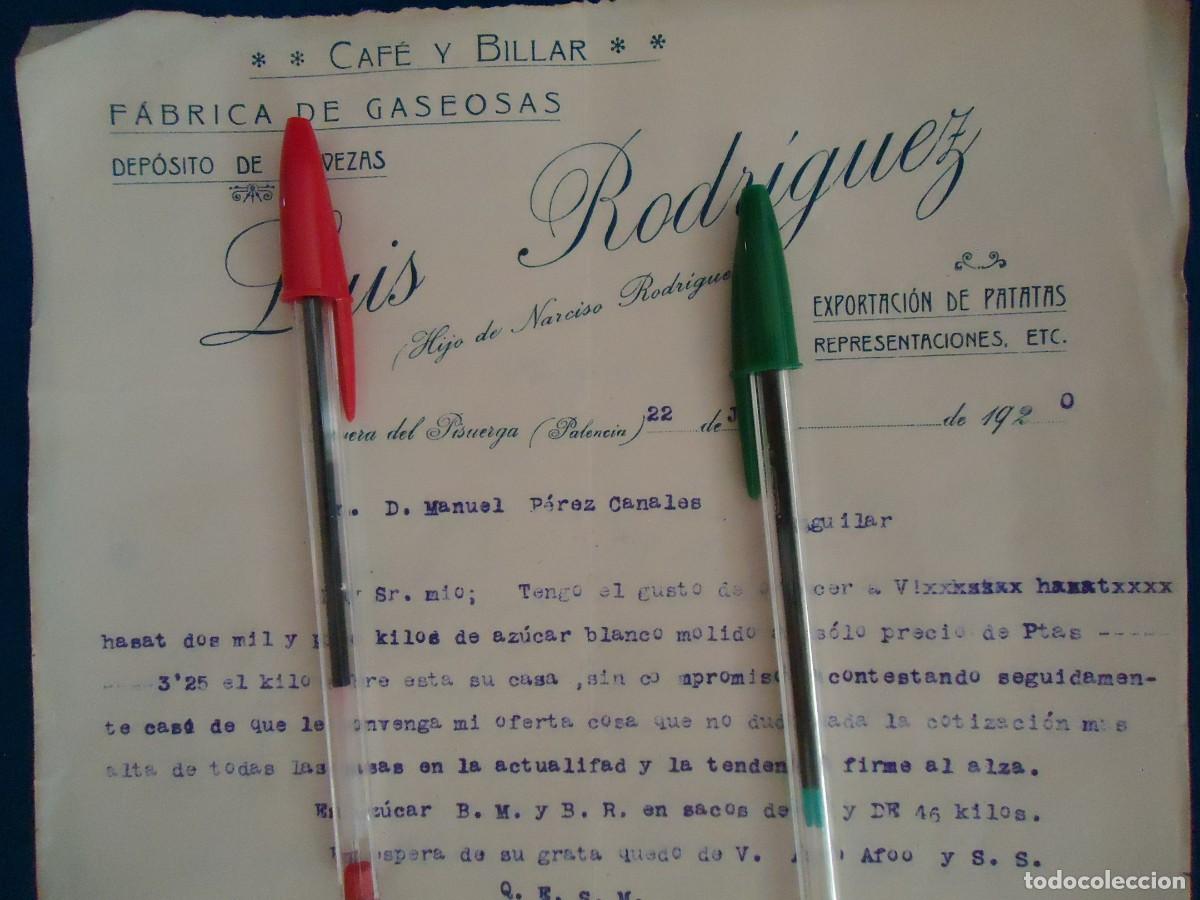 * * CAFÉ Y BILLAR * *
FÁBRICA DE GASEOSAS
DEPÓSITO DE VEZAS
Luis Rodríguez
(Hijo de Narciso Rodrigue
EXPORTACIÓN DE PATATAS
REPRESENTACIONES, ETC.
vera del Pisuerga (Palencia) 22 de J de 192 0
D. Manuel Pérez Canales
guilar
Sr. mio; Tengo el gusto de cer a V!xxkstxx haxatxxxx
hasat dos mil y kilos de azúcar blanco molido sólo precio de Ptas -----
---- 3'25 el kilo bre esta su casa ,sin co mpromiso contestando seguidamen-
te caso de que le onvenga mi oferta cosa que no dud ada la cotización mas
alta de todas las asas en la actualifad y la tenden firme al alza.
En zúcar B. M. y B. R. en sacos de y DE 46 kilos.
spera de su grata quedo de V. Afoo y S. S.
Q. E. S. M.
todocoleccion